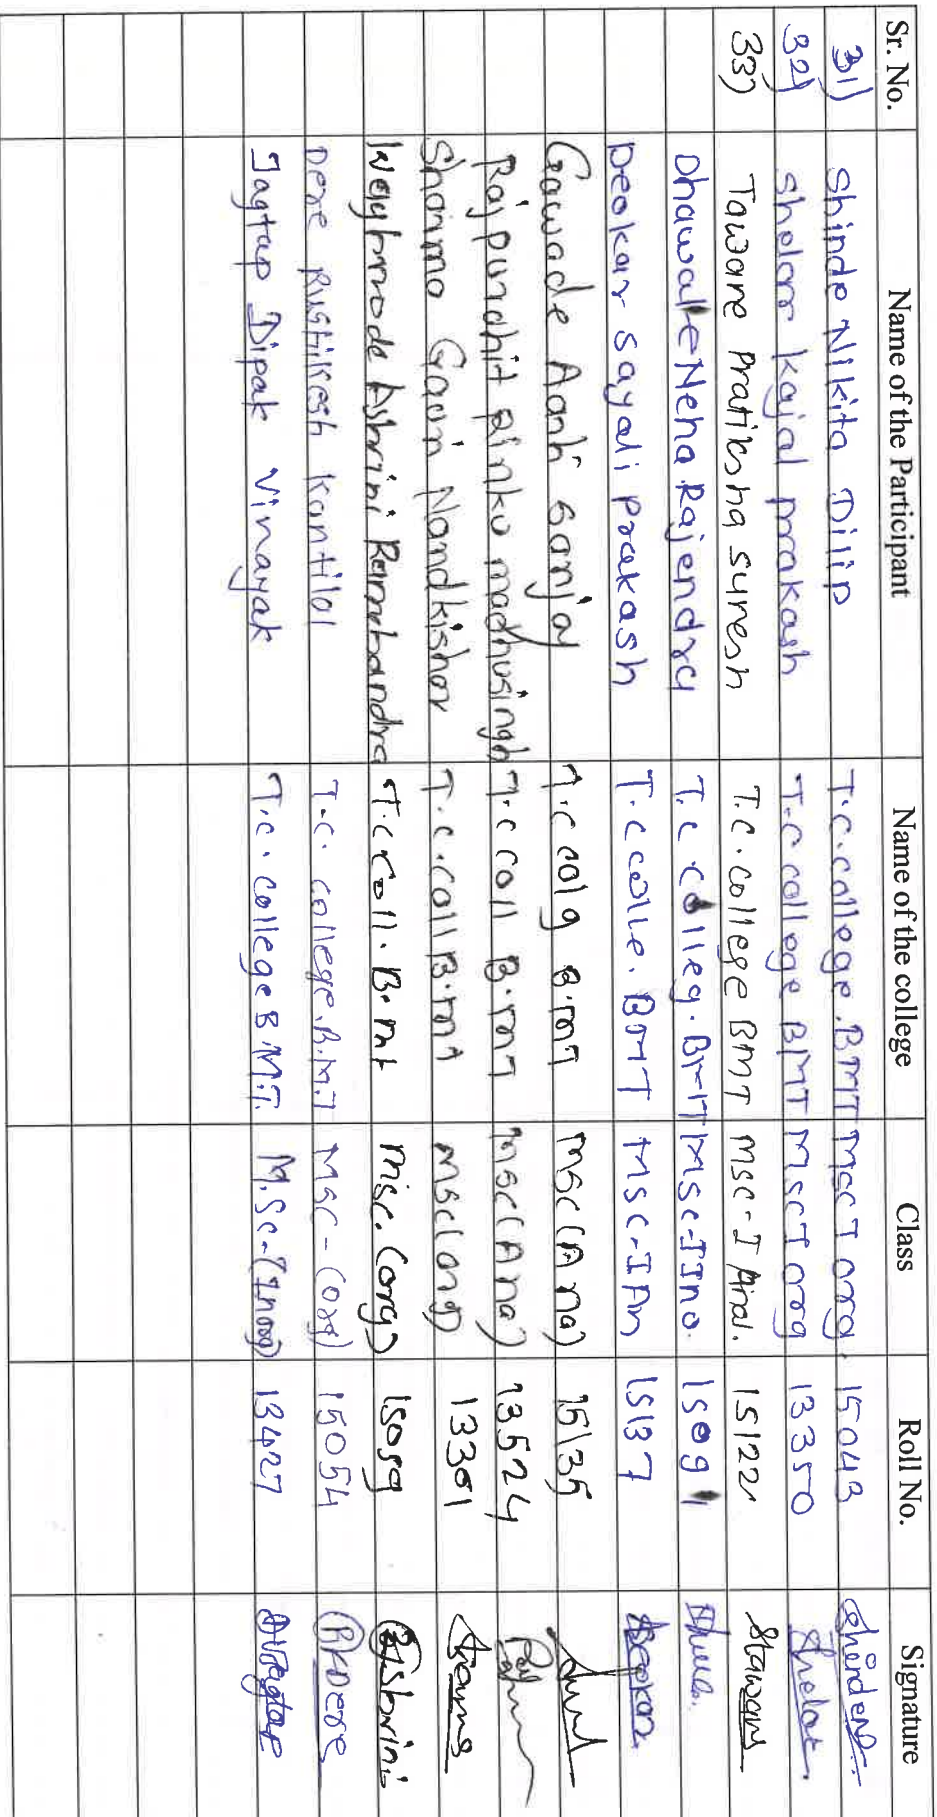 Sr. No. Name of the Participant Name of the college Class Roll No. Signature
31) Shinde Nikita Dilip T.C. college. BMT MscI org. 15043 Shinde
32) Shelar Kajal prakash T.C college BMT MscI org 13350 Shelar
33) Taware Pratiksha suresh T.C. college BMT msc-I Anal. 15122 Staware
Dhawale Neha Rajendra T.C. Colleg. BMT Msc-I Ino. 15091
Deokar sayali Prakash T.C colle. BMT Msc-I An 15137 Deokar
Gawade Aarti Sanjay T.C colg B.mT msc(Ana) 15135
Rajpurohit pinku madhusingh T.C coll B.mT msc(Ana) 13524
Sharma Gauri Nandkishor T.C. coll B.mT msc(org) 13301
Waghmode Ashrini Ramchandra T.C coll. B.mt msc. (org) 15059 Ashrini
Dere Rushikesh Kantilal T.C. college. B.M.T MSC-(org) 15054 RKDere
Jagtap Dipak Vinayak T.C. college B.M.T. M.Sc-(Inorg) 13427 DVJagtap